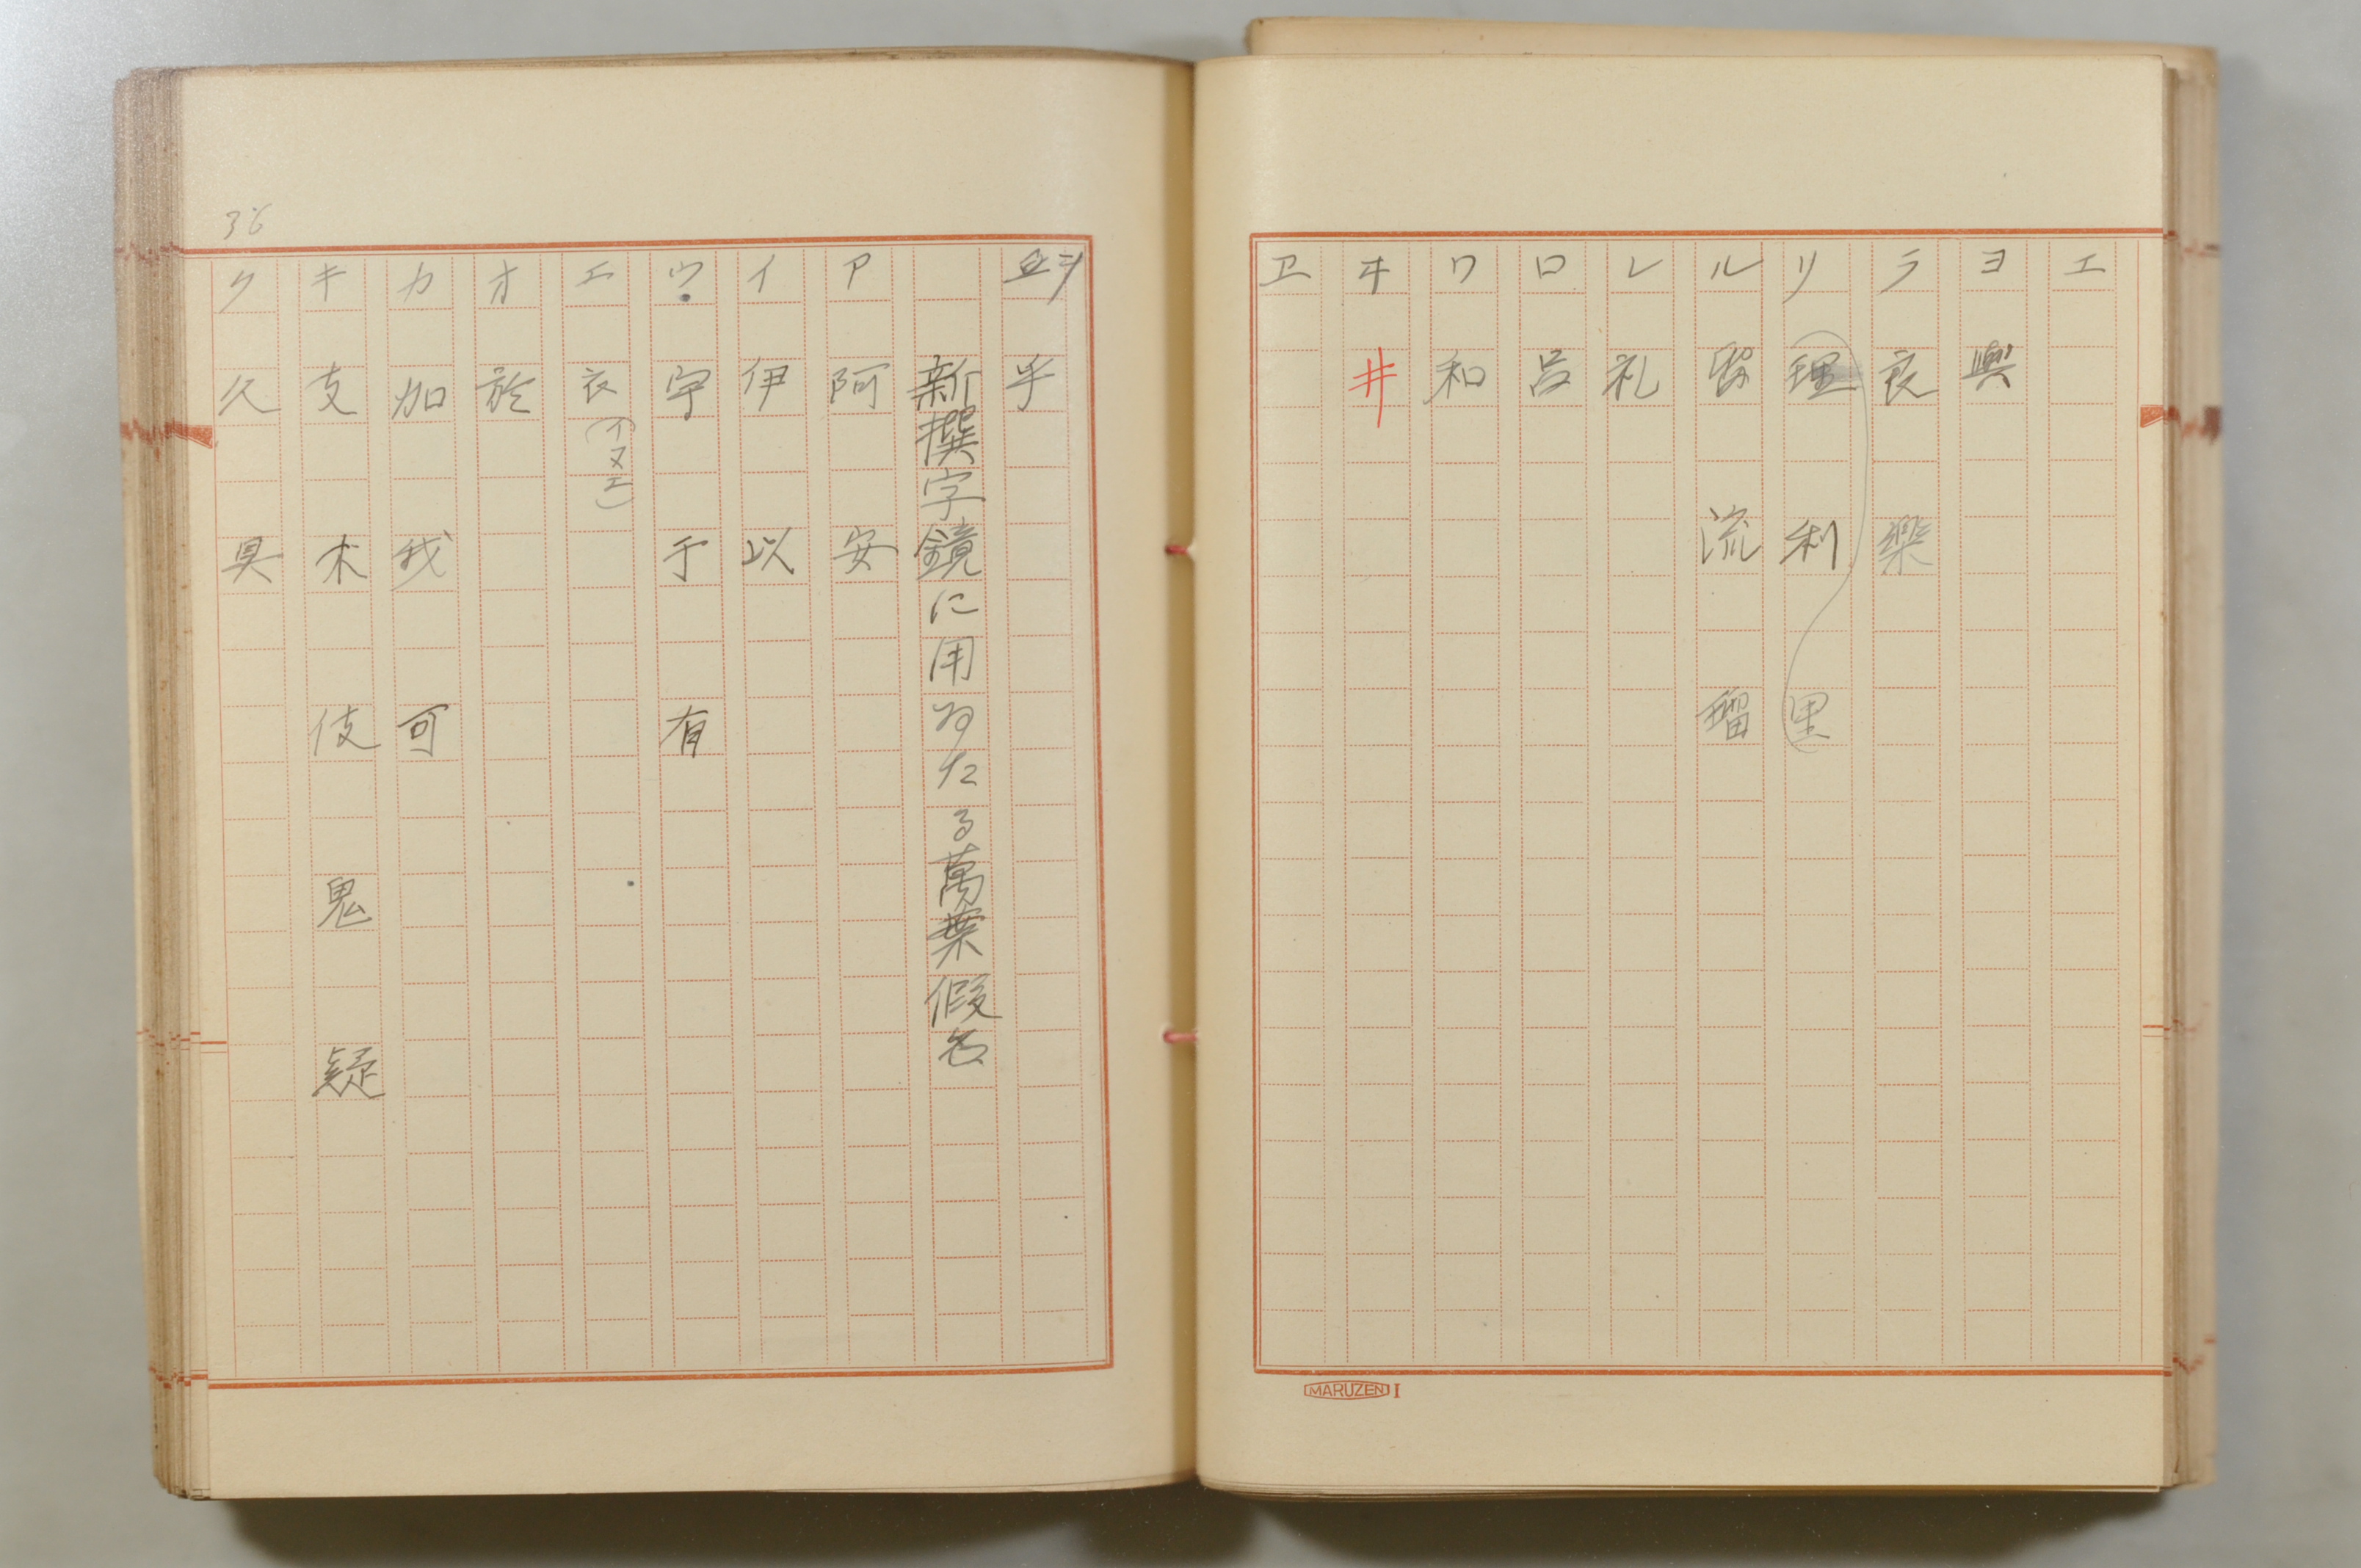 エ
ヨ 與
ラ 良 樂
リ 理 利 里
ル 留 流 瑠
レ 礼
ロ 呂
ワ 和
ヰ 井
ヱ
MARUZEN I
ヲ 乎
新撰字鏡に用ゐたる萬葉假名
ア 阿 安
イ 伊 以
ウ 宇 于 有
エ 衣(イヌエ)
オ 於
カ 加 我 可
キ 支 木 伎 鬼 疑
ク 久 具
36